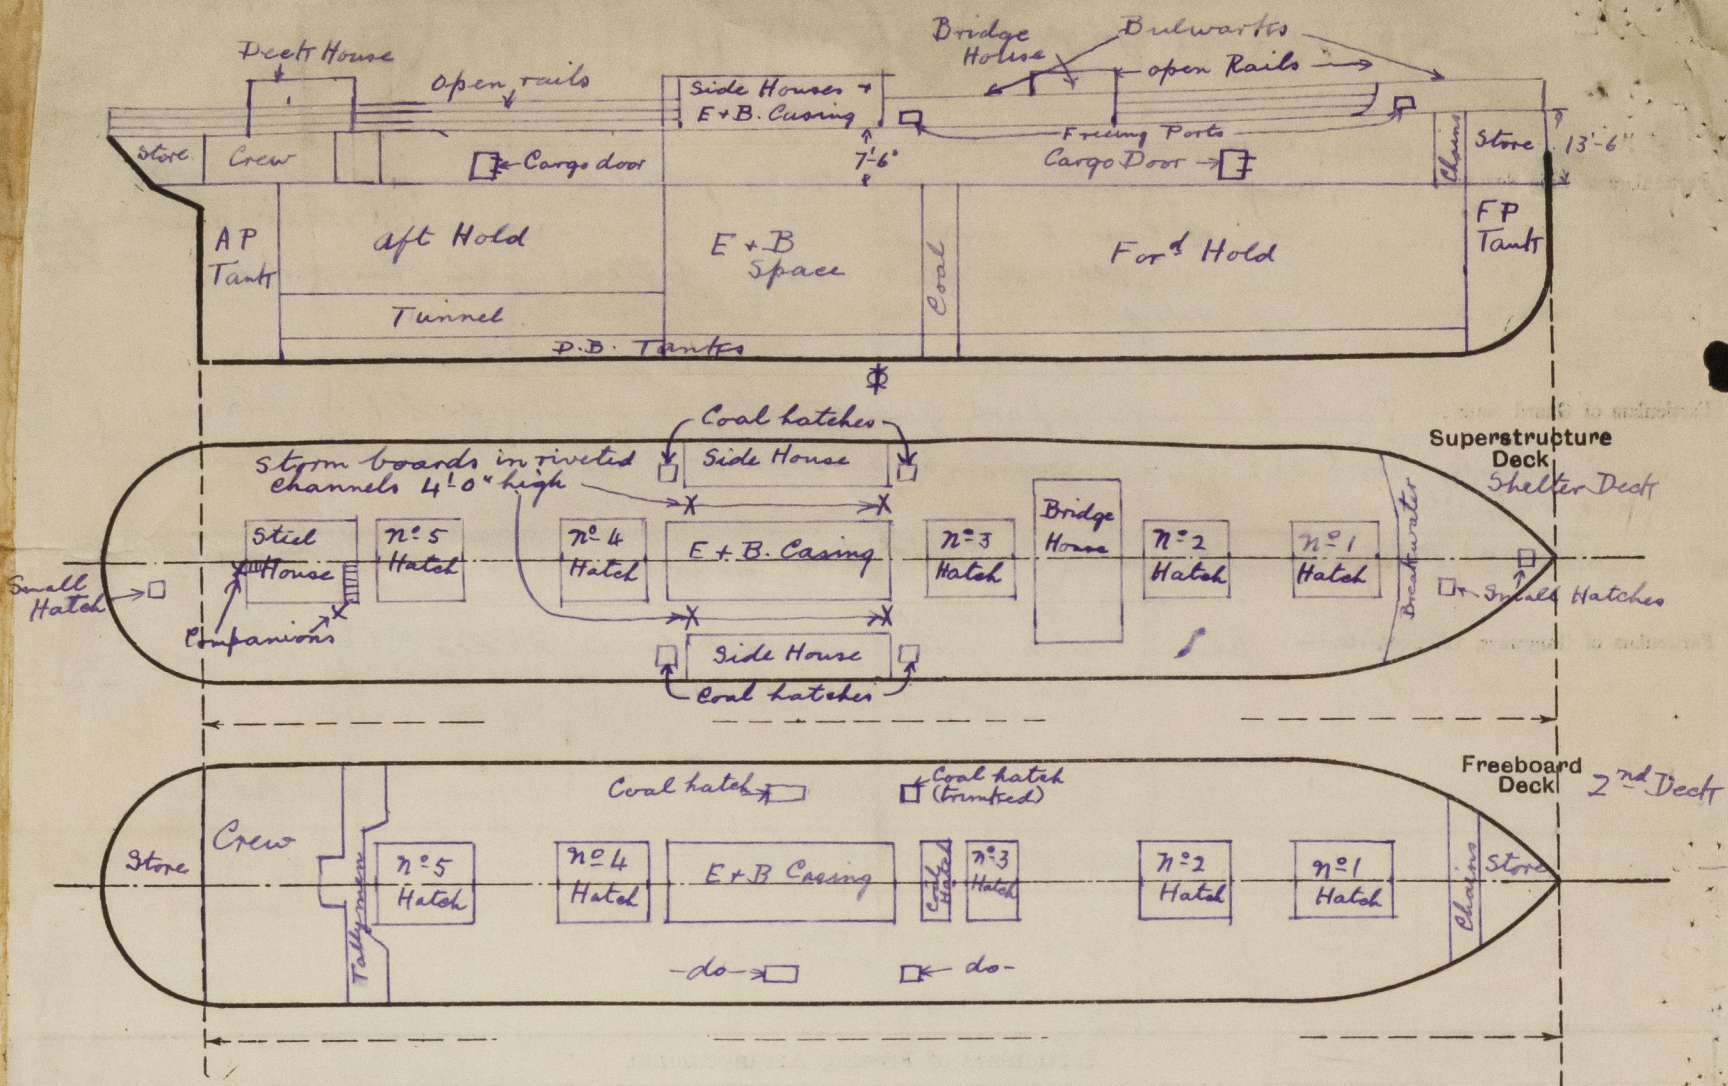 Deck House
open rails
Side Houses +
E + B. Casing
Bridge
House
Bulwarks
open Rails
Freeing Ports
Store
Crew
Cargo door
7'-6"
Cargo Door
Chains
Store
13'-6"
A P
Tank
Aft Hold
E + B
Space
Coal
For^d Hold
F P
Tank
Tunnel
D.B. Tanks
Coal hatches
Storm boards in riveted
channels 4'-0" high
Side House
Superstructure
Deck
Shelter Deck
Steel
House
Nº 5
Hatch
Nº 4
Hatch
E + B. Casing
Nº 3
Hatch
Bridge
House
Nº 2
Hatch
Nº 1
Hatch
Breakwater
Small
Hatch
Small Hatches
Companions
Side House
Coal hatches
Freeboard
Deck
2nd Deck
Coal hatch
Coal hatch
(trunked)
Store
Crew
Tallymen
Nº 5
Hatch
Nº 4
Hatch
E + B Casing
Coal
Hatch
Nº 3
Hatch
Nº 2
Hatch
Nº 1
Hatch
Chains
Store
-do-
do-